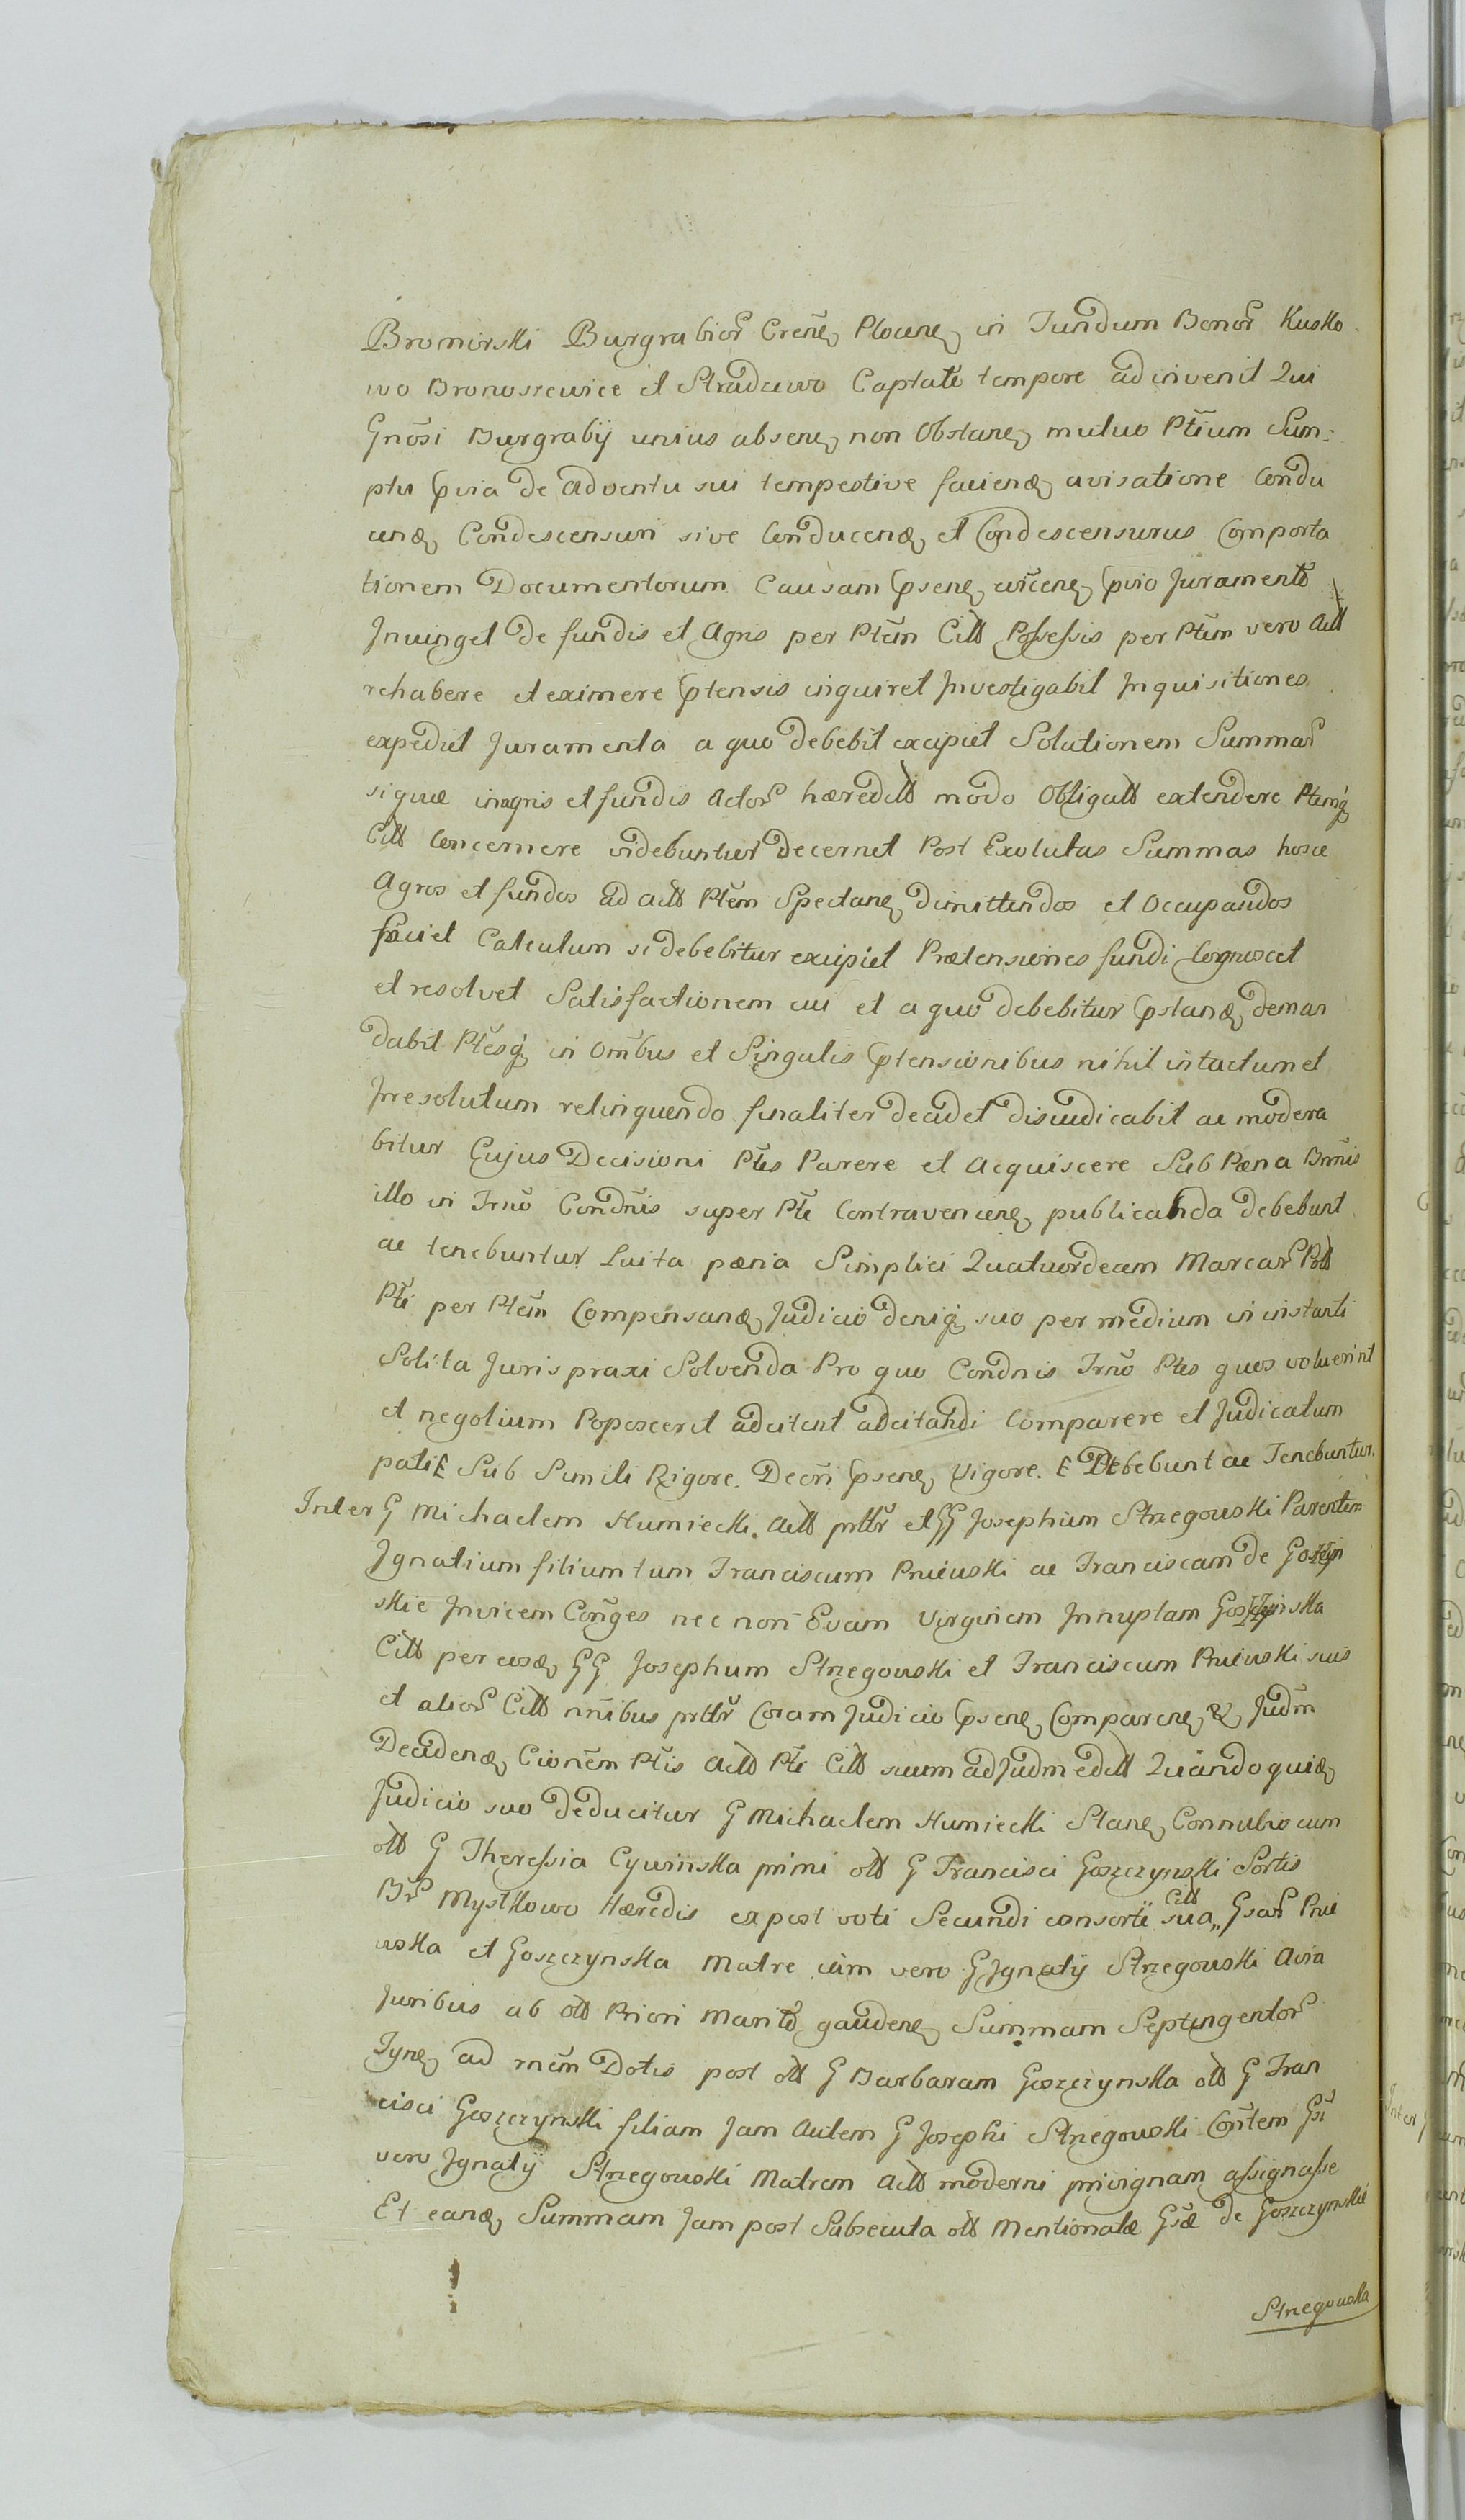 Bromirski Burgrabior Crene Plocene in Fundum Bonor Kusko
wo Bronoszewice et Stradzewo Captato tempore adinvenit Qui
Gnosi Burgrabij unius absene non Obstane mutuo Ptium Sum:
ptu pvia de adventu sui tempestive faciena avisatione Condu
cena Condescensuri sive Conducena et Condescensurus Comporta
tionem Documentorum Causam psene pvio Juramento
Injunget de fundis et Agris per Ptem Citt Possessis per Ptem vero Act
rehabere et eximere ptensis inquiret Investigabit Inquisitiones
expediet Juramenta a quo debebit excipiet Solutionem Summar
si quæ in agris et fundis Actor hæreditt modo Obligatt extendere Ptemq
Citt Concernere videbuntur Decernet Post Exolutas Summas hosce
Agros et fundos ad Actt Ptem Spectane dimittendos et Occupandos
faciet Calculum si debebitur excipiet Prætensiones fundi Cognoscet
et resolvet Satisfactionem cui et a quo debebitur pstana deman
dabit Ptesq in Ombus et Singulis ptensionibus nihil intactum et
Irresolutum relinquendo finaliter decidet disiudicabit ac modera
bitur Cujus Decisioni Ptes Parere et Acquiscere Sub Pæna Bmnis
illo in Trno Condnis super Pte Contraveniene publicanda debebunt
ac tenebuntur Luita pæna Simplici Quatuordecim Marcar Poll
Pti per Ptem Compensana Judicio deniq suo per medium in instanti
Solita Juris praxi Solvenda Pro quo Condnis Trno Ptes quos voluerint
et negotium Poposcerit adcitent adcitandi Comparere et Judicatum
pati E Sub Simili Rigore. Decri psene Vigore. E Debebunt ac Tenebuntur.
Inter G Michaelem Humiecki Actt prttr et GG Josephum Strzegowski Parentem
Ignatium filium tum Franciscum Pniewski ac Franciscam de Goszczyn
skie Invicem Conges nec non Evam Virginem Innuptam Goszczynska
Citt per eosd GG Josephum Strzegowski et Franciscum Pniewski suis
et alior Citt nnibus prttr Coram Judicio psene Comparene & Judm
Decidena Cionem Ptis Actt Pti Citt suum ad Judm editt Quandoquid
Judicio suo deducitur G Michaelem Humiecki Stane Connubio cum
ott G Theressia Cywinska primi ott G Francisci Goszczynski Sortis
Br Mystkowo Hæredis expost voti Secundi consorte sua Citt Gsar Pnie
wska et Goszczynska Matre iam vero G Ignatij Strzegowski Avia
Juribus ab ott Priori Marito gaudene Summam Septingentor
Tyne ad rnem Dotis post ott G Barbaram Goszczynska ott G Fran
cisci Goszczynski filiam Jam Autem G Josephi Strzegowski Contem Gsi
vero Ignatij Strzegowski Matrem Actt moderni privignam assignasse
Et eand Summam Jam post Subsecuta ott Mentionatæ Gsæ de Goszczynskie
Strzegowska